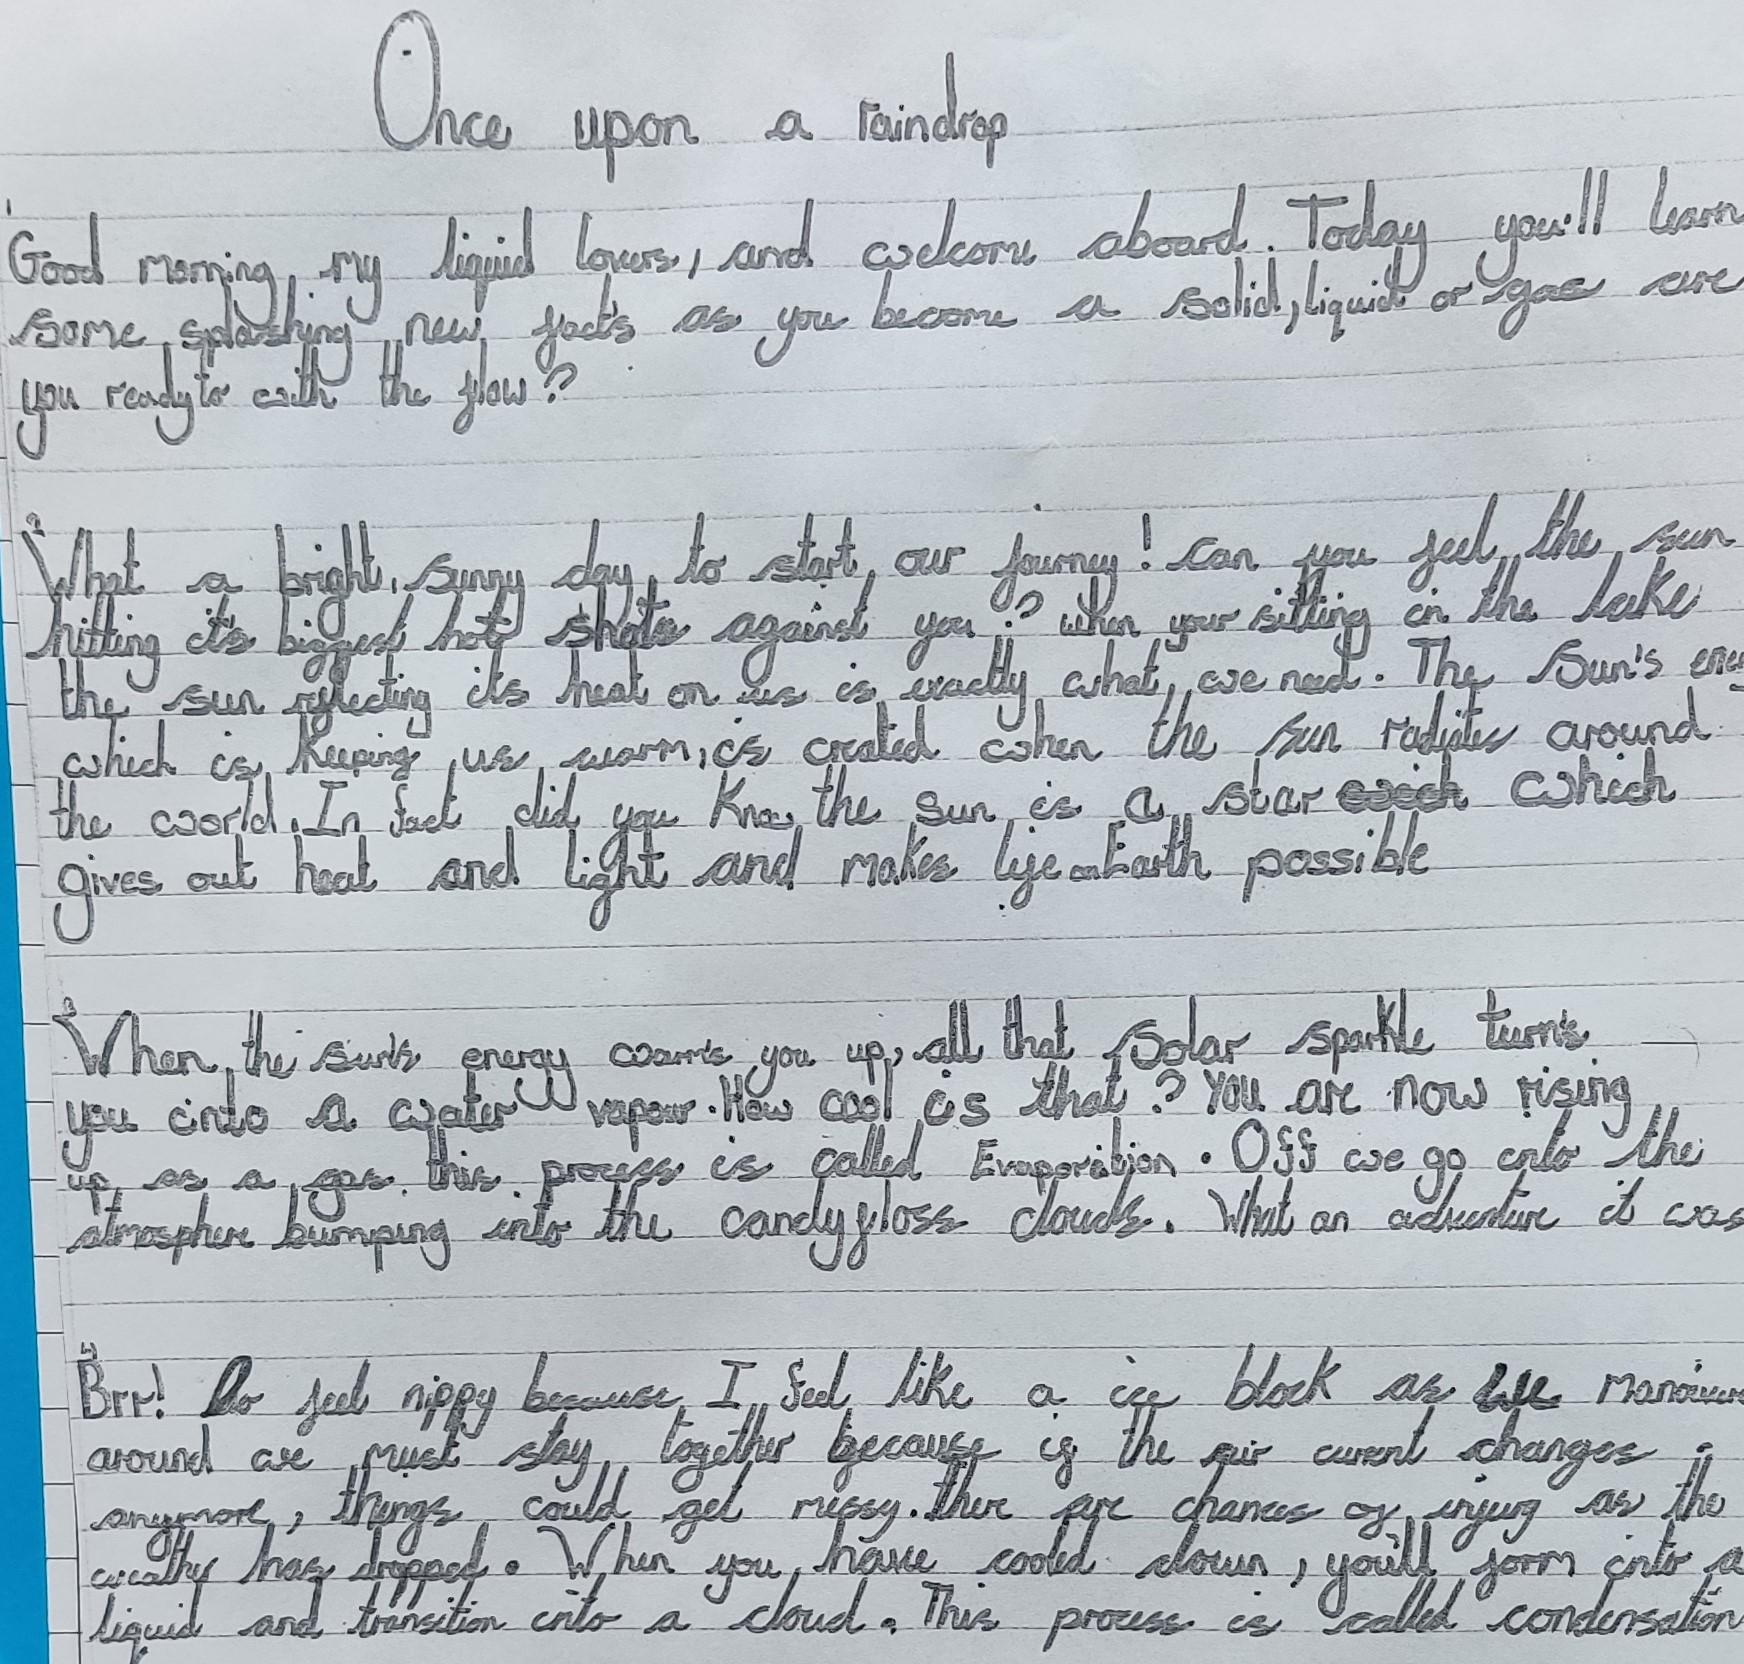 Once upon a raindrop
Good morning, my liquid lovers, and welcome aboard. Today you'll learn
some splashing new facts as you become a solid, liquid or gas are
you ready to with the flow?
What a bright, sunny day, to start our journey! Can you feel the sun
hitting it's biggest hot shots against you? when your sitting in the lake
the sun reflecting its heat on us is exactly what we need. The Sun's
which is keeping us warm, is created when the sun radiates around
the world. In fact did you know the sun is a star which
gives out heat and light and makes life on Earth possible
When the sun's energy warms you up, all that Solar sparkle turns
you into a water vapour. How cool is that? You are now rising
up as a gas this process is called Evaporation. Off we go into the
atmosphere bumping into the candyfloss clouds. What an adventure it was
Brr! Do feel nippy because I feel like a ice block as we
around we must stay together because if the air current changes
anymore, things could get messy. there are chances of injury as the
has dropped. When you have cooled down, you'll form into a
liquid and transition into a cloud. This process is called condensation